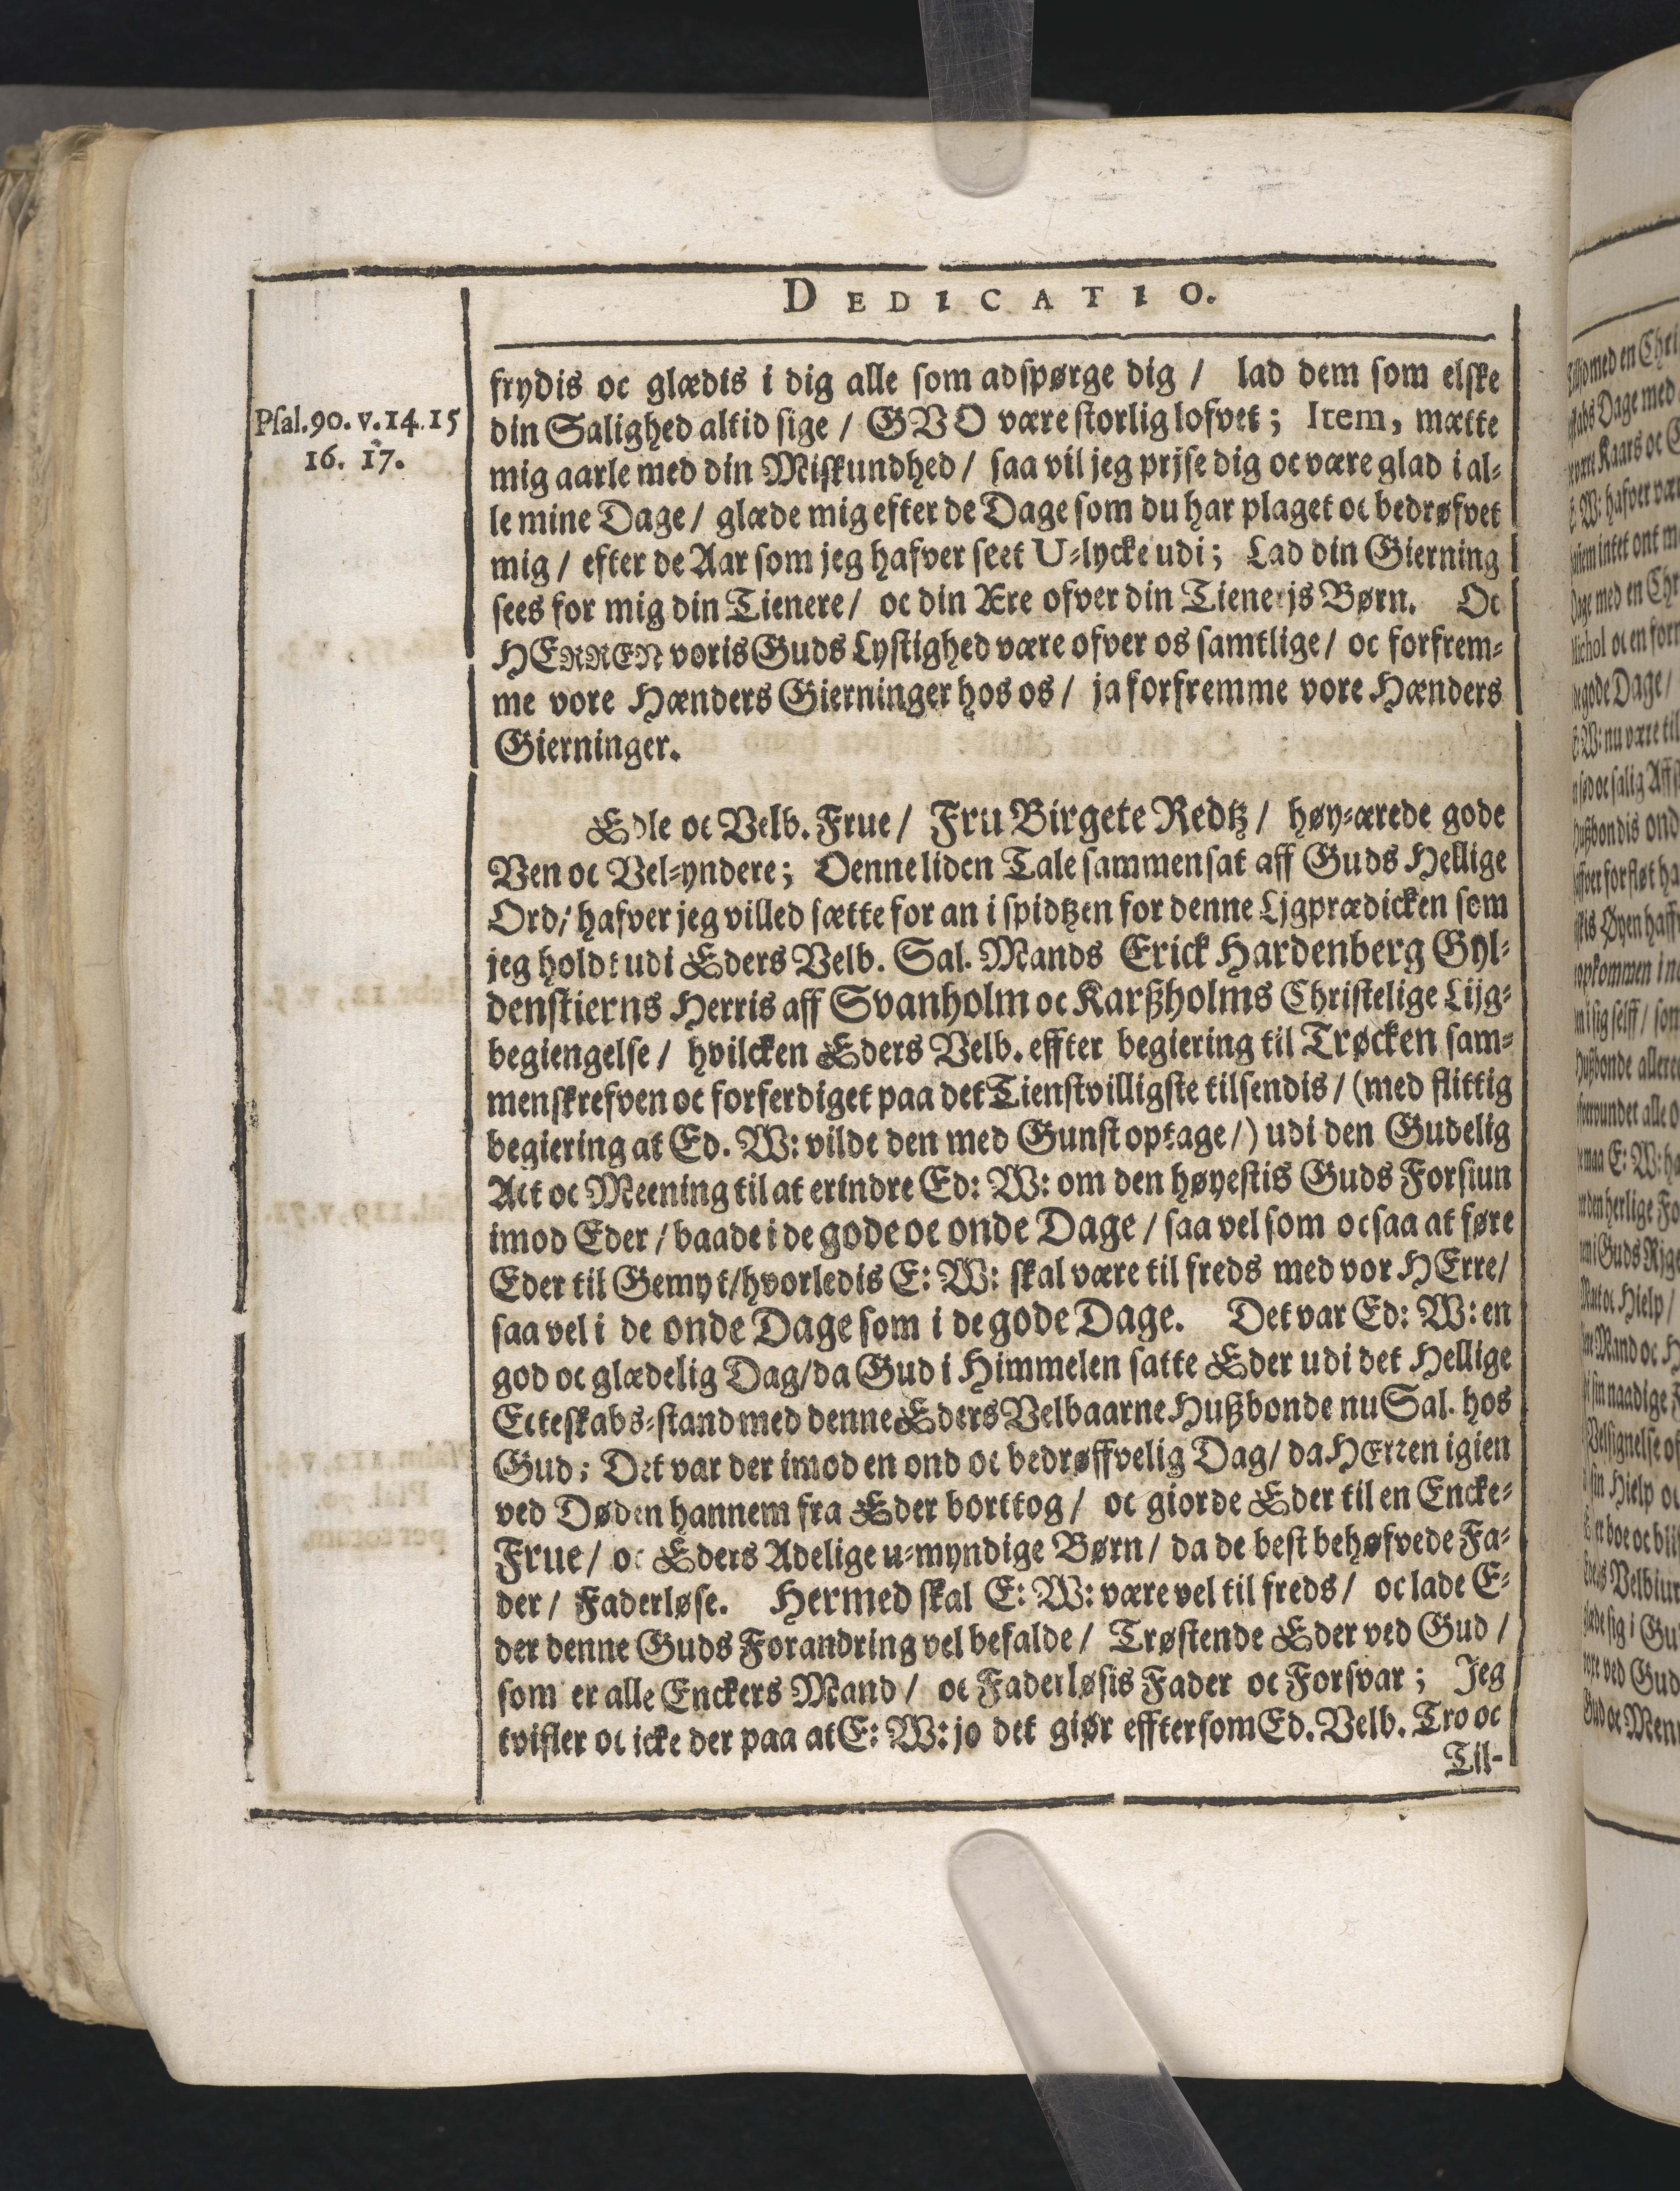 DEDICATIO.
Psal.90. v.14.15
16. 17.
frydis oc glædis i dig alle som adspørge dig / lad dem som elske
din Salighed altid sige / GVD være storlig lofvet ; Item, mætte
mig aarle med din Miskundhed / saa vil jeg prjse dig oc være glad i al-
le mine Dage / glæde mig efter de Dage som du har plaget oc bedrøfvet
mig / efter de Aar som jeg hafver seet U-lycke udi ; Lad din Gierning
sees for mig din Tienere / oc din Ære ofver din Tienerjs Børn. Oc
HERREN voris Guds Lystighed være ofver os samtlige / oc forfrem-
me vore Hænders Gierninger hos os / ja forfremme vore Hænders
Gierninger.
Edle oc Velb. Frue / Fru Birgete Redtz / høy-ærede gode
Ven oc Vel-yndere ; Denne liden Tale sammensat aff Guds Hellige
Ord / hafver jeg villed sætte for an i spidtzen for denne Ljgprædicken som
jeg holdt udi Eders Velb. Sal. Mands Erick Hardenberg Gyl-
denstierns Herris aff Svanholm oc Karßholms Christelige Lijg-
begiengelse / hvilcken Eders Velb. effter begiering til Trøcken sam-
menskrefven oc forferdiget paa det Tienstvilligste tilsendis / (med flittig
begiering at Ed. W: vilde den med Gunst optage /) udi den Gudelig
Act oc Meening til at erindre Ed: W: om den høyestis Guds Forsiun
imod Eder / baade i de gode oc onde Dage / saa vel som ocsaa at føre
Eder til Gemyt / hvorledis E: W: skal være til freds med vor HErre /
saa vel i de onde Dage som i de gode Dage. Det var Ed: W: en
god oc glædelig Dag / da Gud i Himmelen satte Eder udi det Hellige
Ecteskabs-stand med denne Eders Velbaarne Hußbonde nu Sal. hos
Gud ; Det var der imod en ond oc bedrøffvelig Dag / da HErren igien
ved Døden hannem fra Eder borttog / oc giorde Eder til en Encke-
Frue / oc Eders Adelige u-myndige Børn / da de best behøfvede Fa-
der / Faderløse. Hermed skal E: W: være vel til freds / oc lade E-
der denne Guds Forandring vel befalde / Trøstende Eder ved Gud /
som er alle Enckers Mand / oc Faderløsis Fader oc Forsvar ; Jeg
tvifler oc icke der paa at E: W: jo det giør efftersom Ed. Velb. Tro oc
Til-